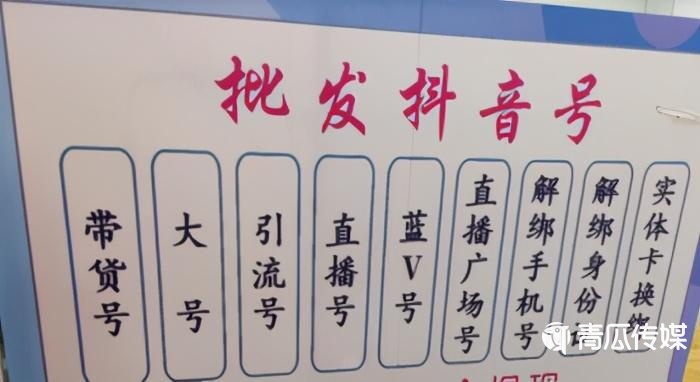 批发抖音号
带货号
大号
引流号
直播号
蓝V号
直播广场号
解绑手机号
解绑身份
实体卡换绑
青瓜传媒